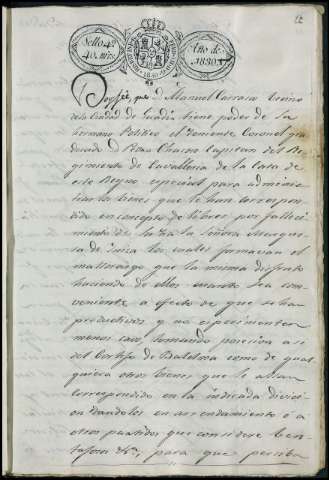 12
Sello 4º
40. mrs.
Año de
1830
Doy fé, que D. Manuel Carrasco vecino
de la Ciudad de Guadix tiene poder de su
hermano Politico el Teniente Coronel gra
duado D. Chacon Capitan del Re
gimiento de Cavalleria de la Costa de
este Reyno especial para adminis
trar los bienes que le han correspon
dido en concepto de libres por falleci
miento de la Sra la Señora Marque
sa de los cuales formavan el
mallorazgo que la misma disfrutó
haciendo de ellos cuanto sea con
veniente a efecto de que se han
productivos y no esperimenten
menos cavo, tomando posesion asi
del Cortijo de como de qual
quiera otros bienes que le allan
correspondido en la indicada divicion
dandolos en arrendamiento ó a
otros partidos que considere ben
tajosos &c, para que perciba